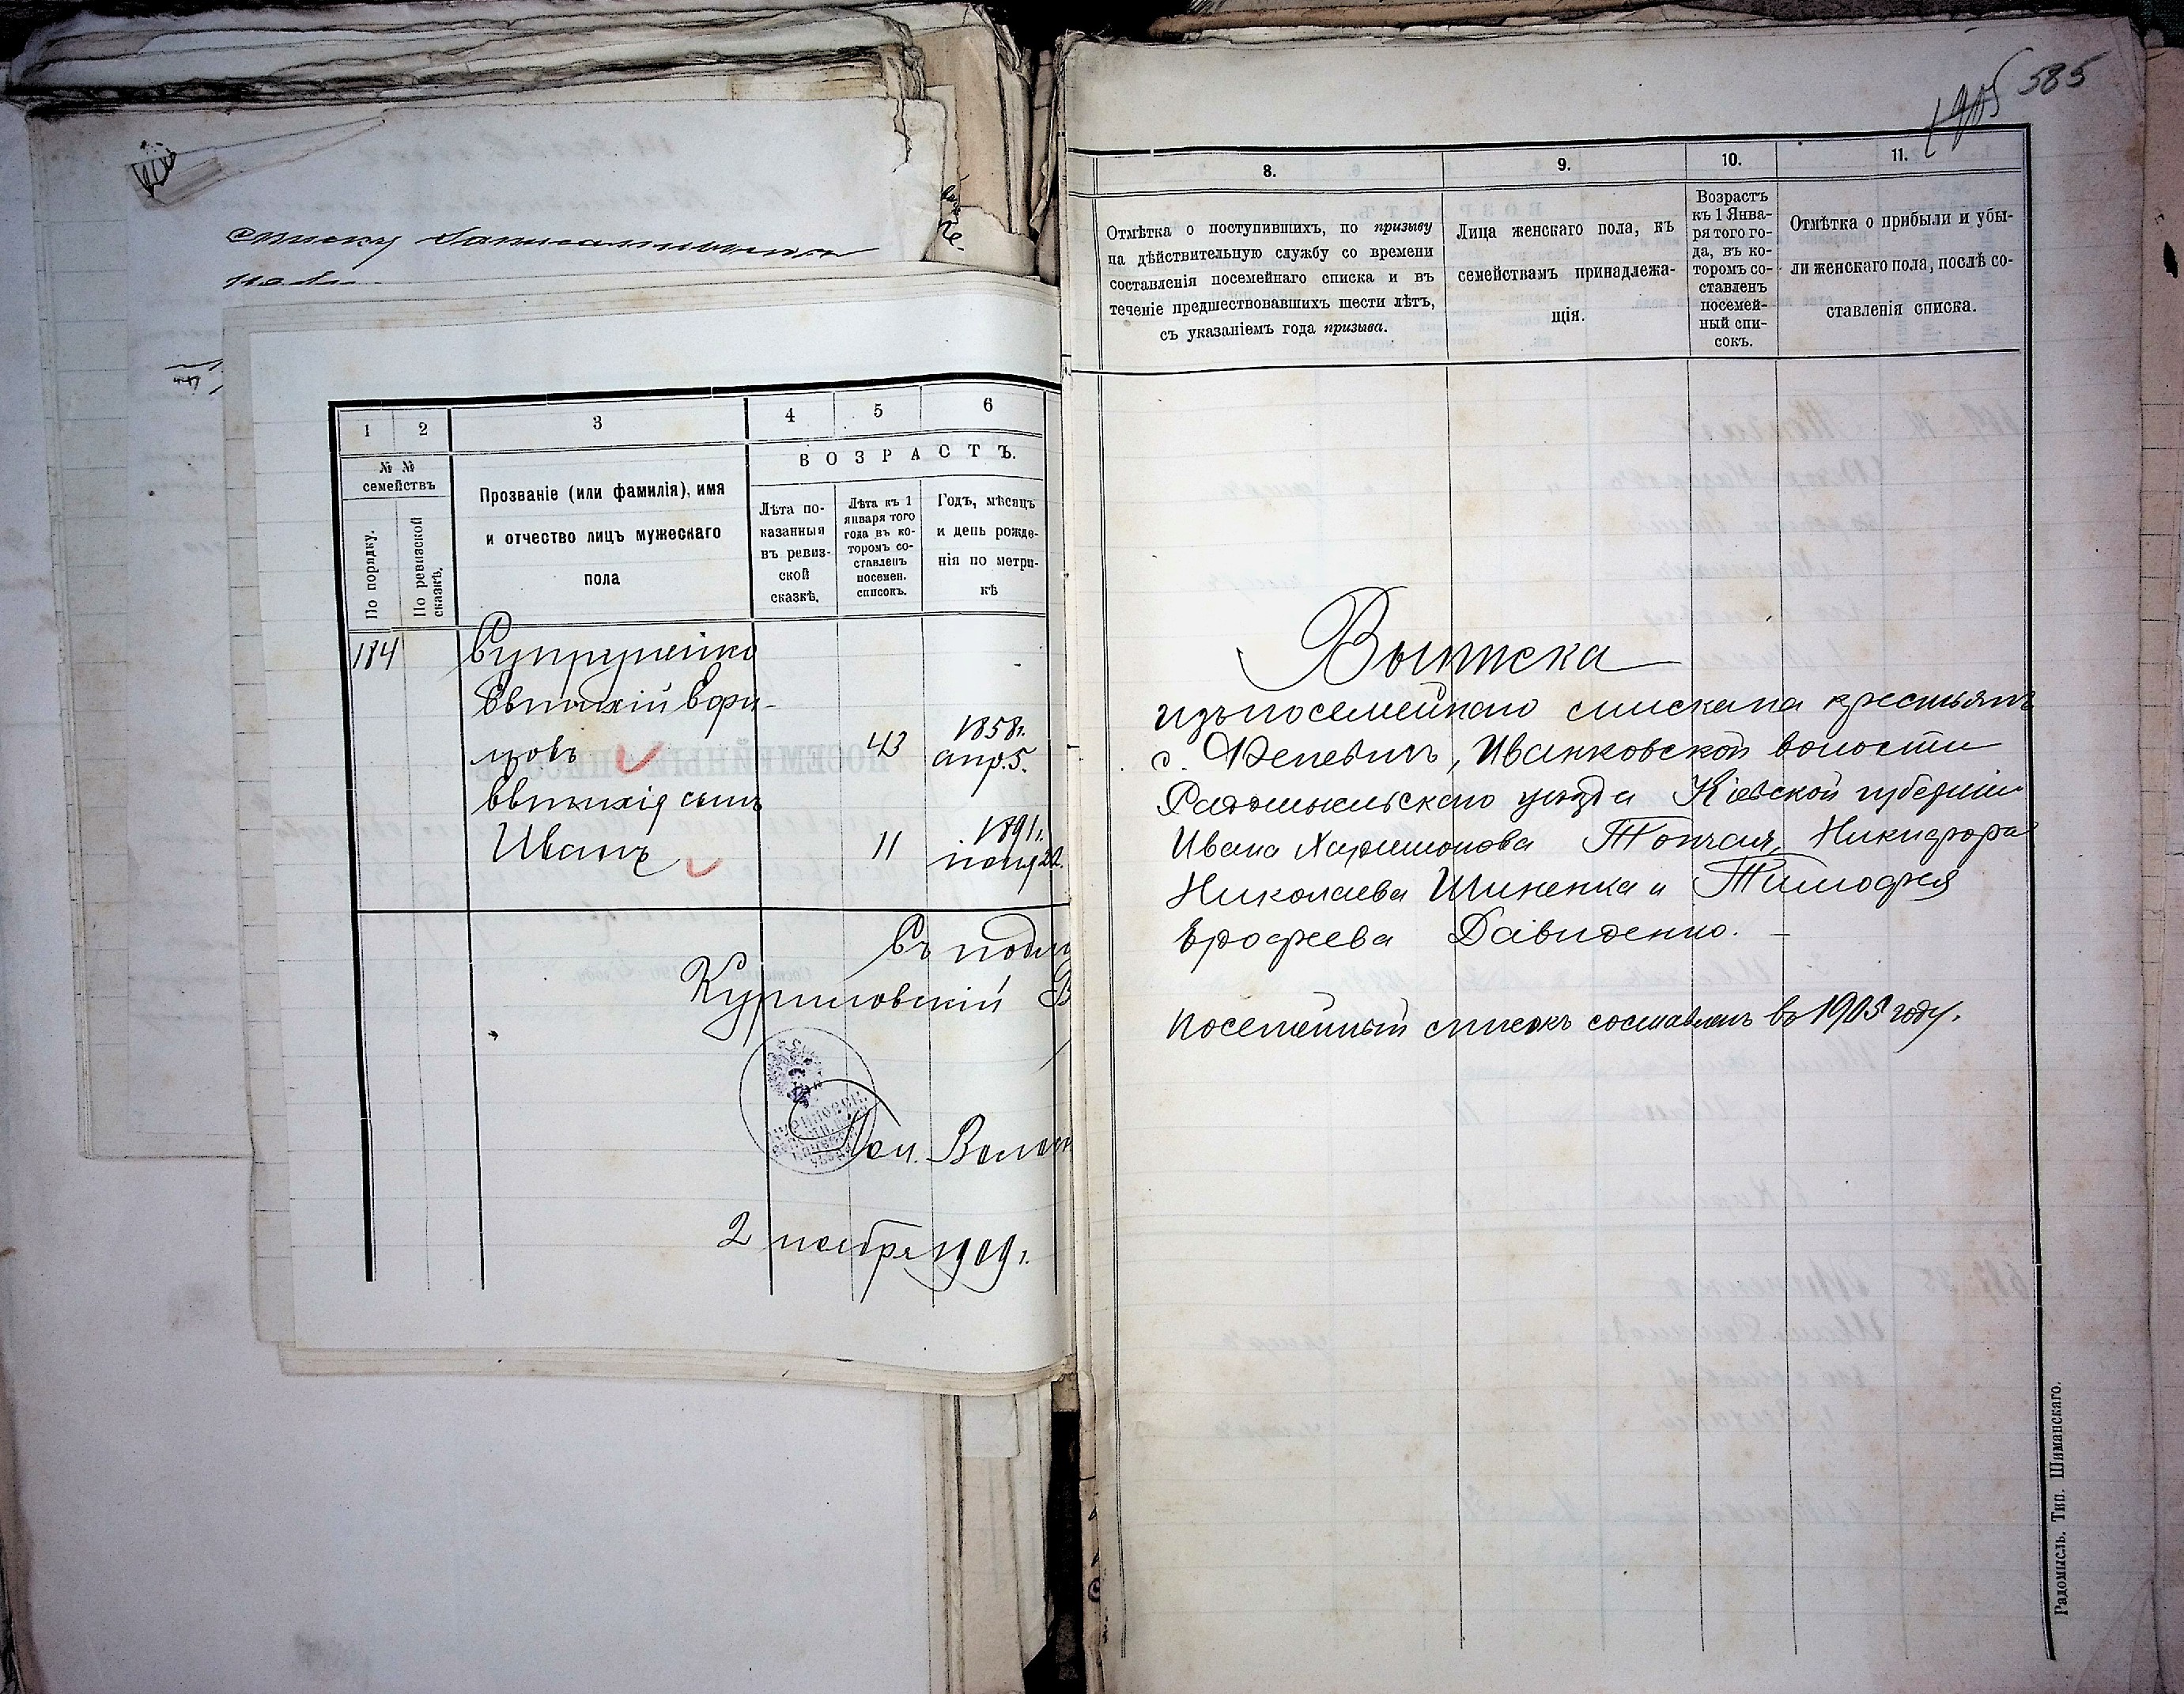 списку
1
2
3
4
5
6
№ №
семействъ
По порядку.
По ревизской
сказкѣ.
Прозваніе (или фамилія), имя
и отчество лицъ мужескаго
пола
ВОЗРАСТЪ.
Лѣта по-
казанныя
въ ревиз-
ской
сказкѣ.
Лѣта къ 1
января того
года въ ко-
торомъ со-
ставленъ
посемен.
списокъ.
Годъ, мѣсяцъ
и день рожде-
нія по метри-
кѣ
184
Супруненко
Евтихій
43
1858 г.
апр. 5.
Евтихія сынъ
Иванъ
11
1891 г.
22.
Въ
2 ноября 1909 г.
1905 585
8.
9.
10.
11.
Отмѣтка о поступившихъ, по призыву
на дѣйствительную службу со времени
составленія посемейнаго списка и въ
теченіе предшествовавшихъ шести лѣтъ,
съ указаніемъ года призыва.
Лица женскаго пола, къ
семействамъ принадлежа-
щія.
Возрастъ
къ 1 Янва-
ря того го-
да, въ ко-
торомъ со-
ставленъ
посемей-
ный спи-
сокъ.
Отмѣтка о прибыли и убы-
ли женскаго пола, послѣ со-
ставленія списка.
Выписка
изъ посемейнаго списка на крестьянъ
с. Иванковской волости
Радомысльскаго уѣзда Кіевской губерніи
Ивана Харитонова Топчая, Никифора
Николаева Шиненка и Тимофея
Ерофеева Давиденко.
Посемейный списокъ составленъ въ 1903 году.
Радомысль. Тип. Шиманскаго.